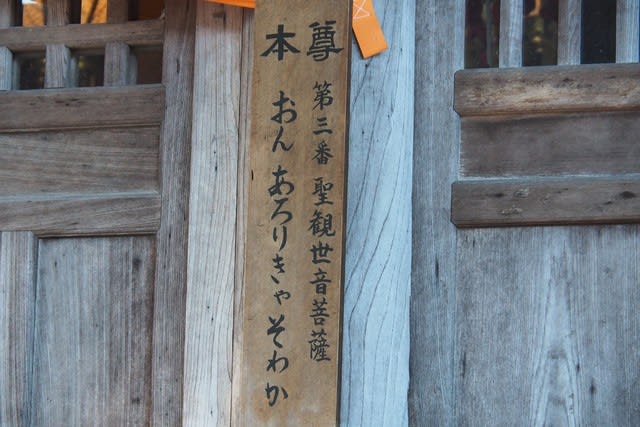 本尊
第三番 聖観世音菩薩
おん あろりきゃ そわか